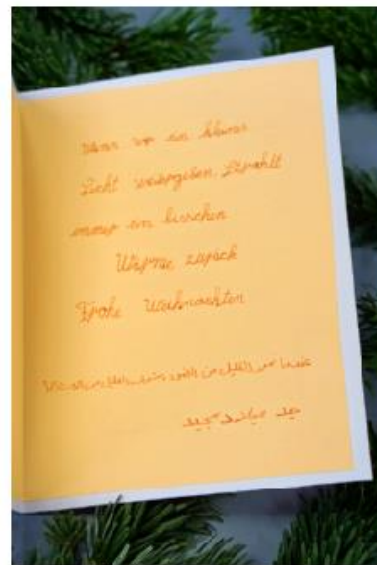 Wenn wir ein kleines
Licht weitergeben Strahlt
immer ein bisschen
Wärme zurück
Frohe Weihnachten
عندما القليل من الضوء
عيد ميلاد مجيد